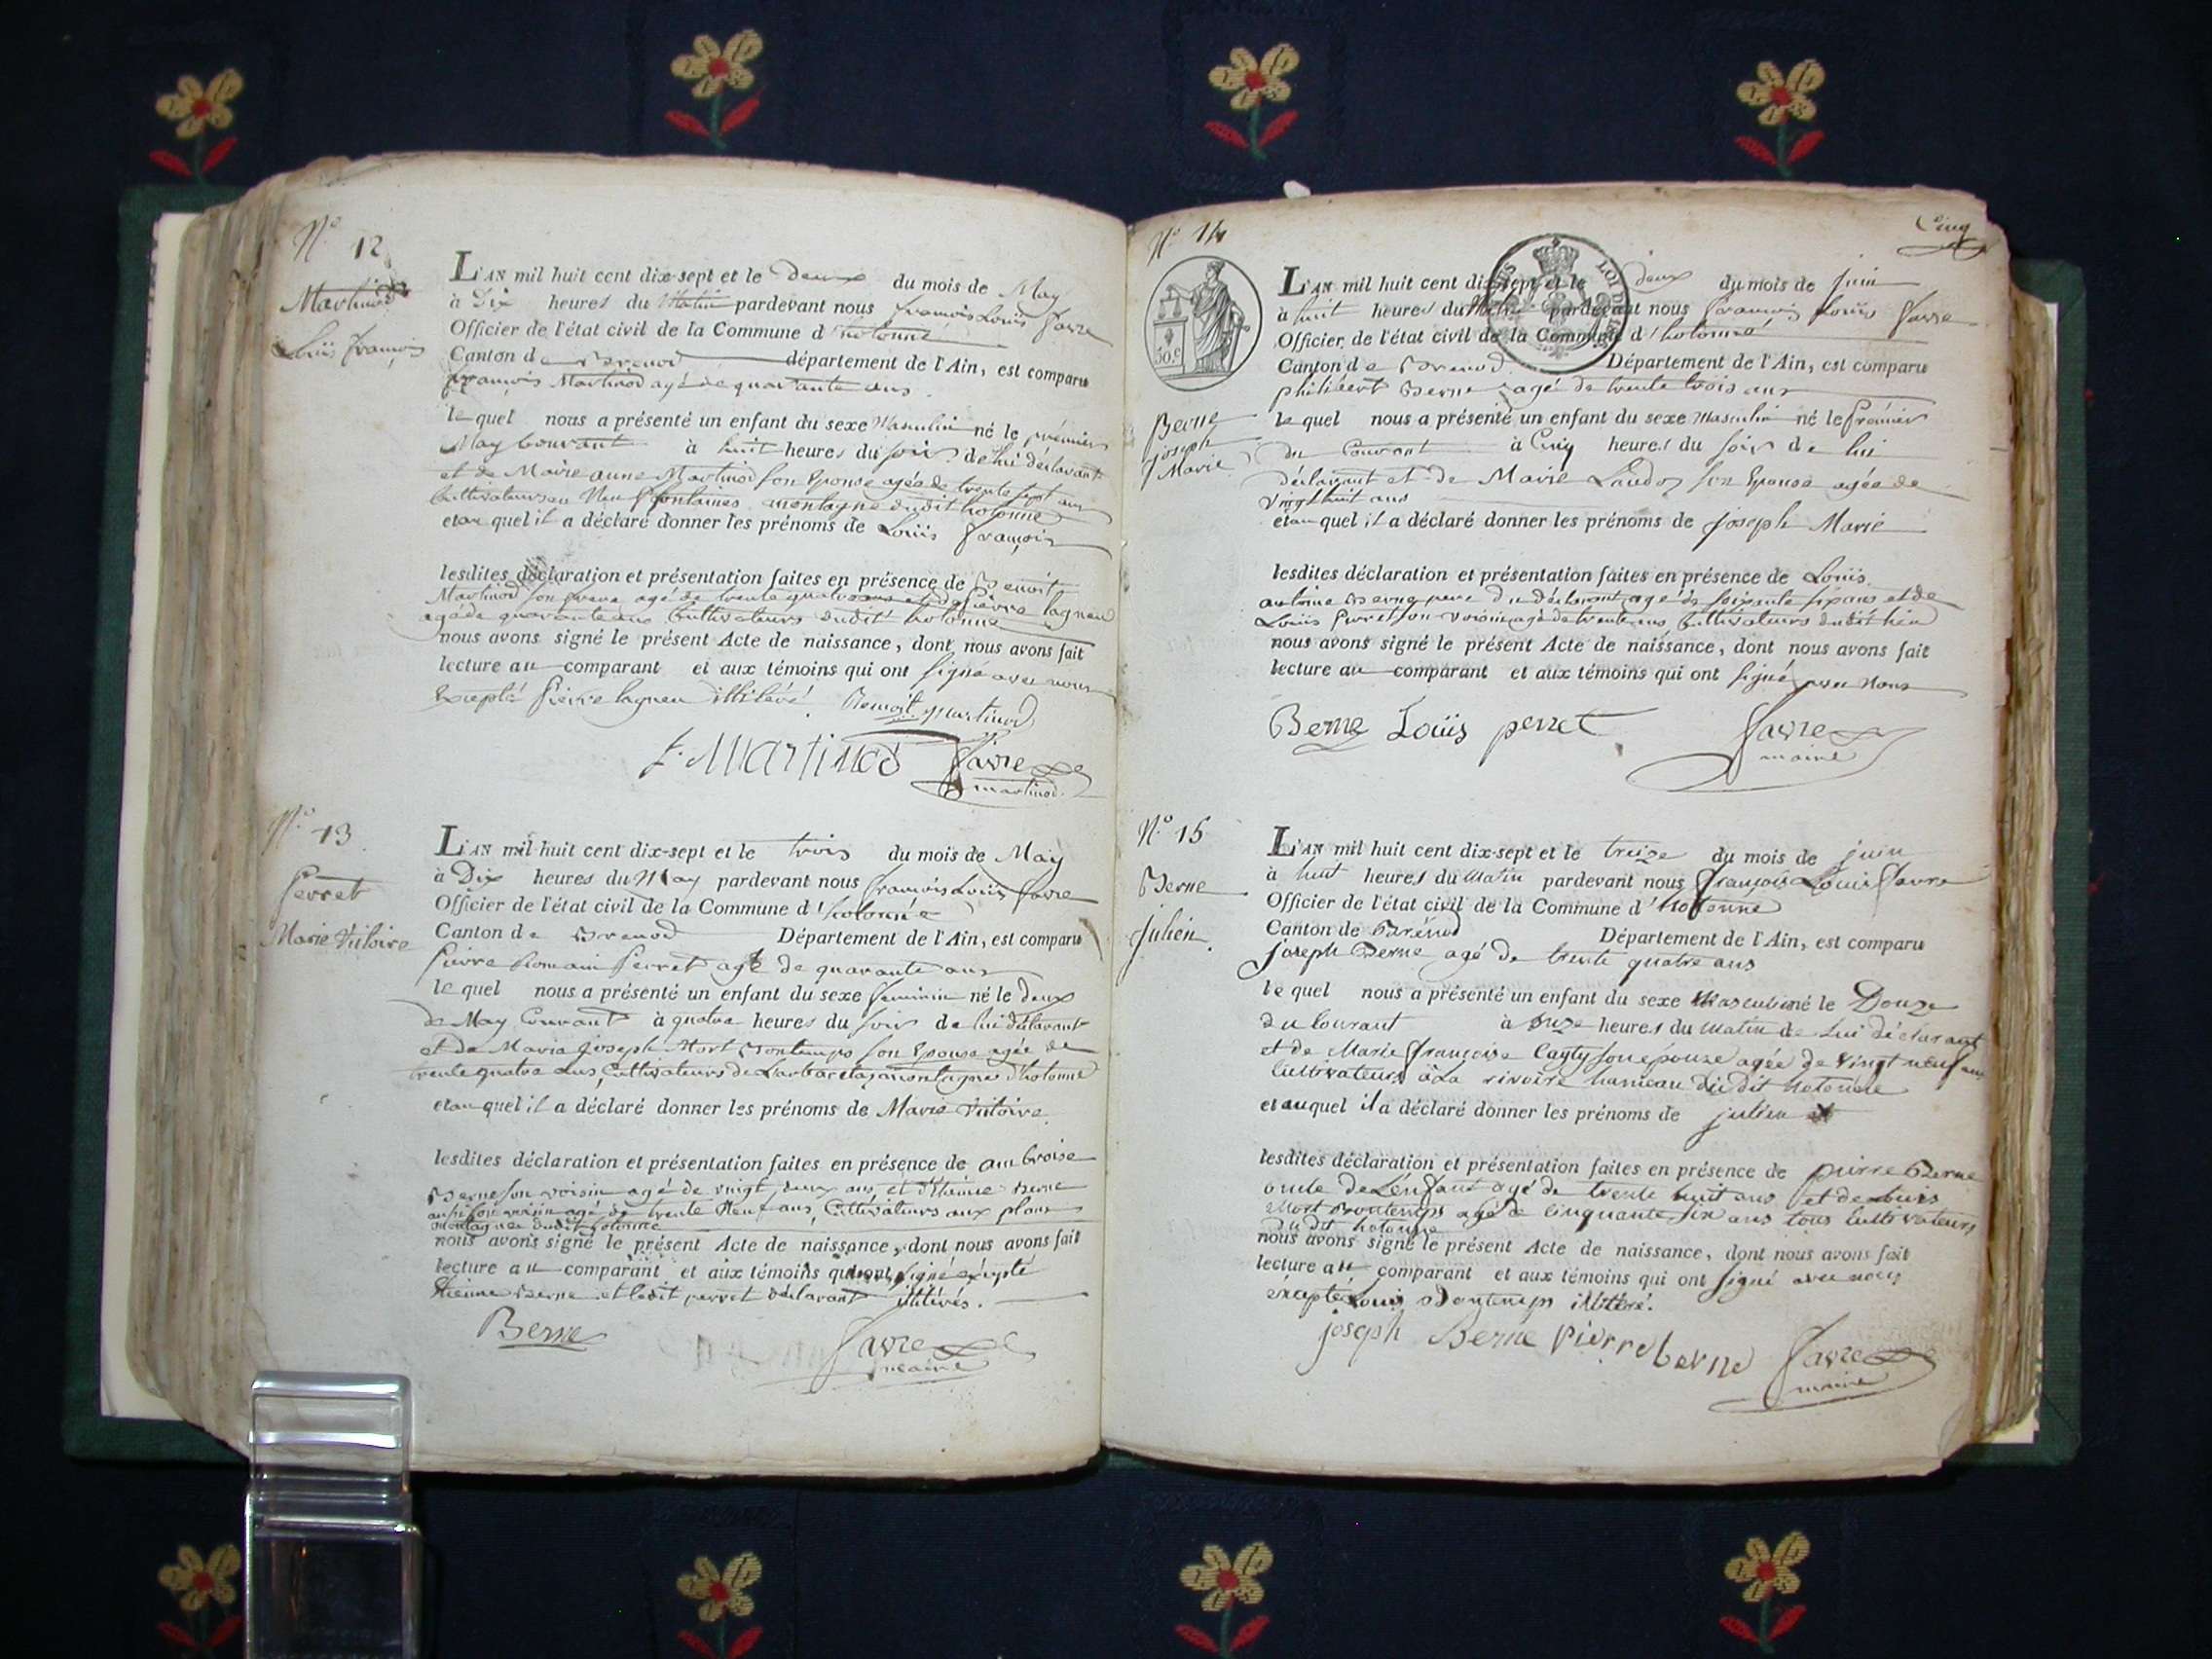 N.o 12
Martinod
Louis François
L'AN mil huit cent dix-sept et le deux du mois de May
à Dix heures du Matin pardevant nous françois Louïs favre
Officier de l'état civil de la Commune d'hotonne
Canton de Brenod département de l'Ain, est comparu
françois Martinod agé de quarante ans
le quel nous a présenté un enfant du sexe Masculin né le prémier
May Courant à huit heures du soir de lui déclarant
et de Marie anne Martinod son Epouse agée de trente sept ans
Cultivateurs en Neu fontaines montagne dudit hotonne
et au quel il a déclaré donner les prénoms de Louïs françois
lesdites déclaration et présentation faites en présence de Benoit
Martinod son frere agé de trente quatre ans et de Pierre lagneu
agé de quarante ans Cultivateurs dudit hotonne
nous avons signé le présent Acte de naissance, dont nous avons fait
lecture au comparant et aux témoins qui ont signé avec nous
Excepté Pierre lagneu illitéré. Benoit martinod
f. Martinod favre
martinod
N.o 13
Perret
Marie Victoire
L'AN mil huit cent dix-sept et le trois du mois de May
à Dix heures du May pardevant nous françois Louïs favre
Officier de l'état civil de la Commune d'hotonne
Canton de Brenod Département de l'Ain, est comparu
Pierre Romain Perret agé de quarante ans
le quel nous a présenté un enfant du sexe feminin né le deux
de May Courant à quatre heures du soir de lui déclarant
et de Marie Joseph Mort Montemps son Epouse agée de
trente quatre ans, Cultivateurs de montagne d'hotonne
et au quel il a déclaré donner les prénoms de Marie Victoire.
lesdites déclaration et présentation faites en présence de ambroise
Berne son voisin agé de vingt deux ans et d'Etienne Berne
aussi son voisin agé de trente Neuf ans, Cultivateurs aux plans
montagne dudit hotonne
nous avons signé le présent Acte de naissance, dont nous avons fait
lecture au comparant et aux témoins qui ont signé éxcepté
Etienne Berne et ledit perret déclarant illitérés.
Berne favre
maire
Cinq
N.o 14
50. c
LOI DE
Berne
joseph
Marie
L'AN mil huit cent dix-sept et le deux du mois de juin
à huit heures du Matin pardevant nous françois Louïs favre
Officier de l'état civil de la Commune d'hotonne
Canton de Brenod Département de l'Ain, est comparu
philibert Berne agé de trente trois ans
le quel nous a présenté un enfant du sexe Masculin né le Prémier
du Courant à Cinq heures du soir de lui
déclarant et de Marie Landoz son Epouse agée de
vingt huit ans
et au quel il a déclaré donner les prénoms de joseph Marie
lesdites déclaration et présentation faites en présence de Louïs
antoine Berne pere du déclarant agé de soixante six ans et de
Louïs Perret son voisin agé de trente ans Cultivateurs dudit lieu
nous avons signé le présent Acte de naissance, dont nous avons fait
lecture au comparant et aux témoins qui ont signé avec Nous
Berne Louïs perret favre
maire
N.o 15
Berne
Julien.
L'AN mil huit cent dix-sept et le treize du mois de juin
à huit heures du Matin pardevant nous françois Louis favre
Officier de l'état civil de la Commune d'hotonne
Canton de Brénod Département de l'Ain, est comparu
joseph Berne agé de trente quatre ans
le quel nous a présenté un enfant du sexe Masculin né le Douze
du Courant à onze heures du Matin de Lui déclarant
et de Marie françoise son épouze agée de vingt neuf ans
Cultivateurs à La rivoire hameau du dit hotonne
et au quel il a déclaré donner les prénoms de julien
lesdites déclaration et présentation faites en présence de pierre Berne
oncle de L'enfant agé de trente huit ans et de Louis
Mort Montemps agé de cinquante six ans tous Cultivateurs
du dit hotonne
nous avons signé le présent Acte de naissance, dont nous avons fait
lecture au comparant et aux témoins qui ont signé avec nous
éxcepté Louis Montemps illitéré.
joseph Berne Pierre berne favre
maire